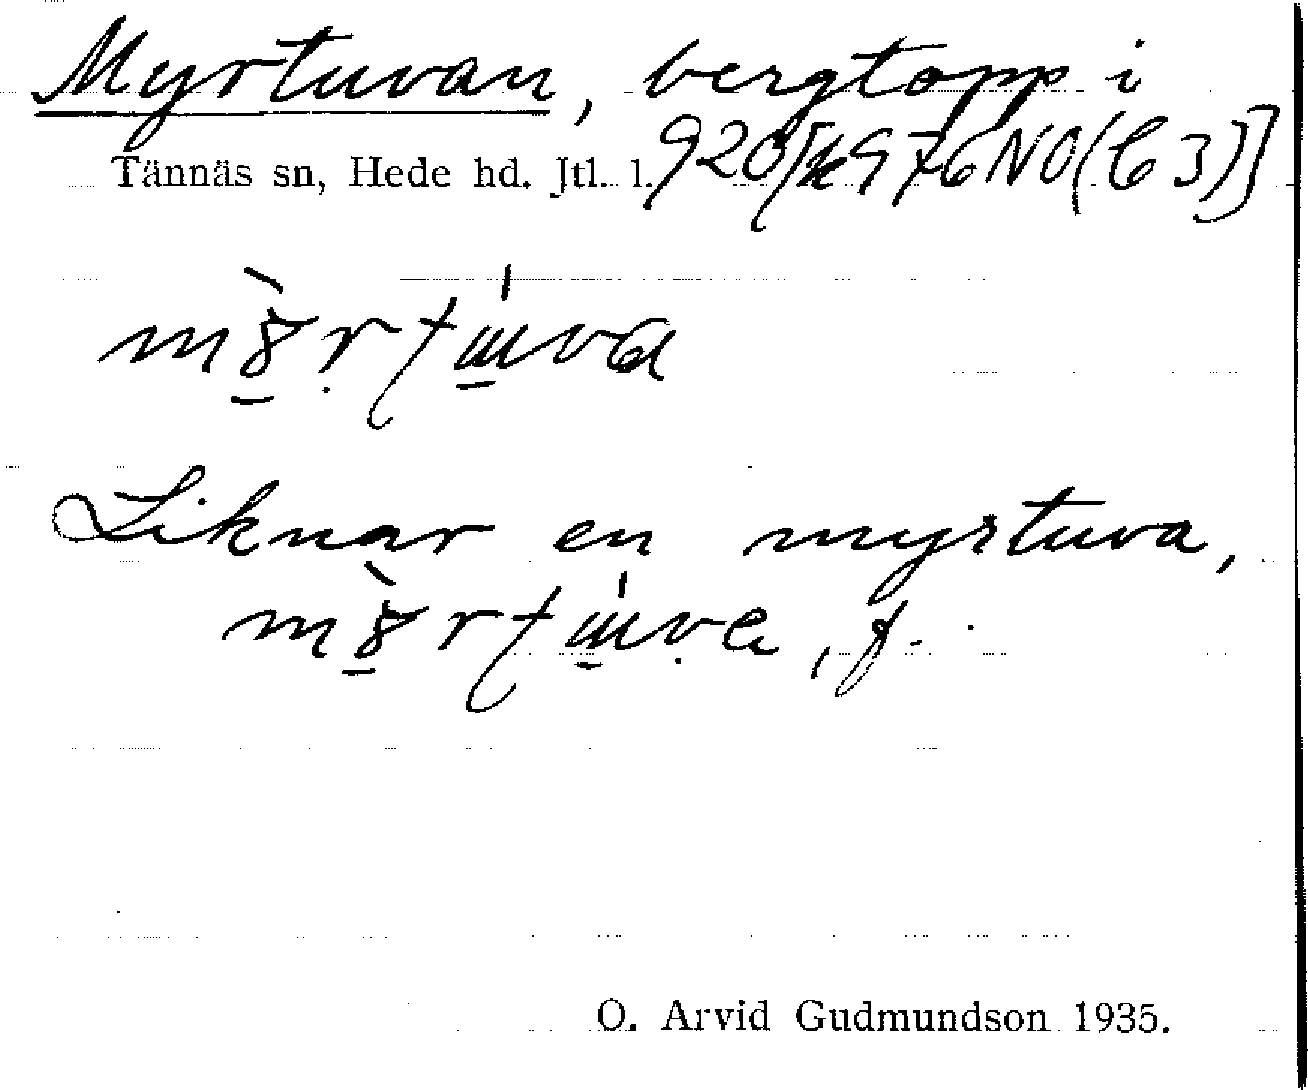 Myrtuvan, bergtopp i
Tännäs sn, Hede hd. Jtl. l. 920[k976NO(C3)]
Liknar en myrtuva,
f.
O. Arvid Gudmundson 1935.